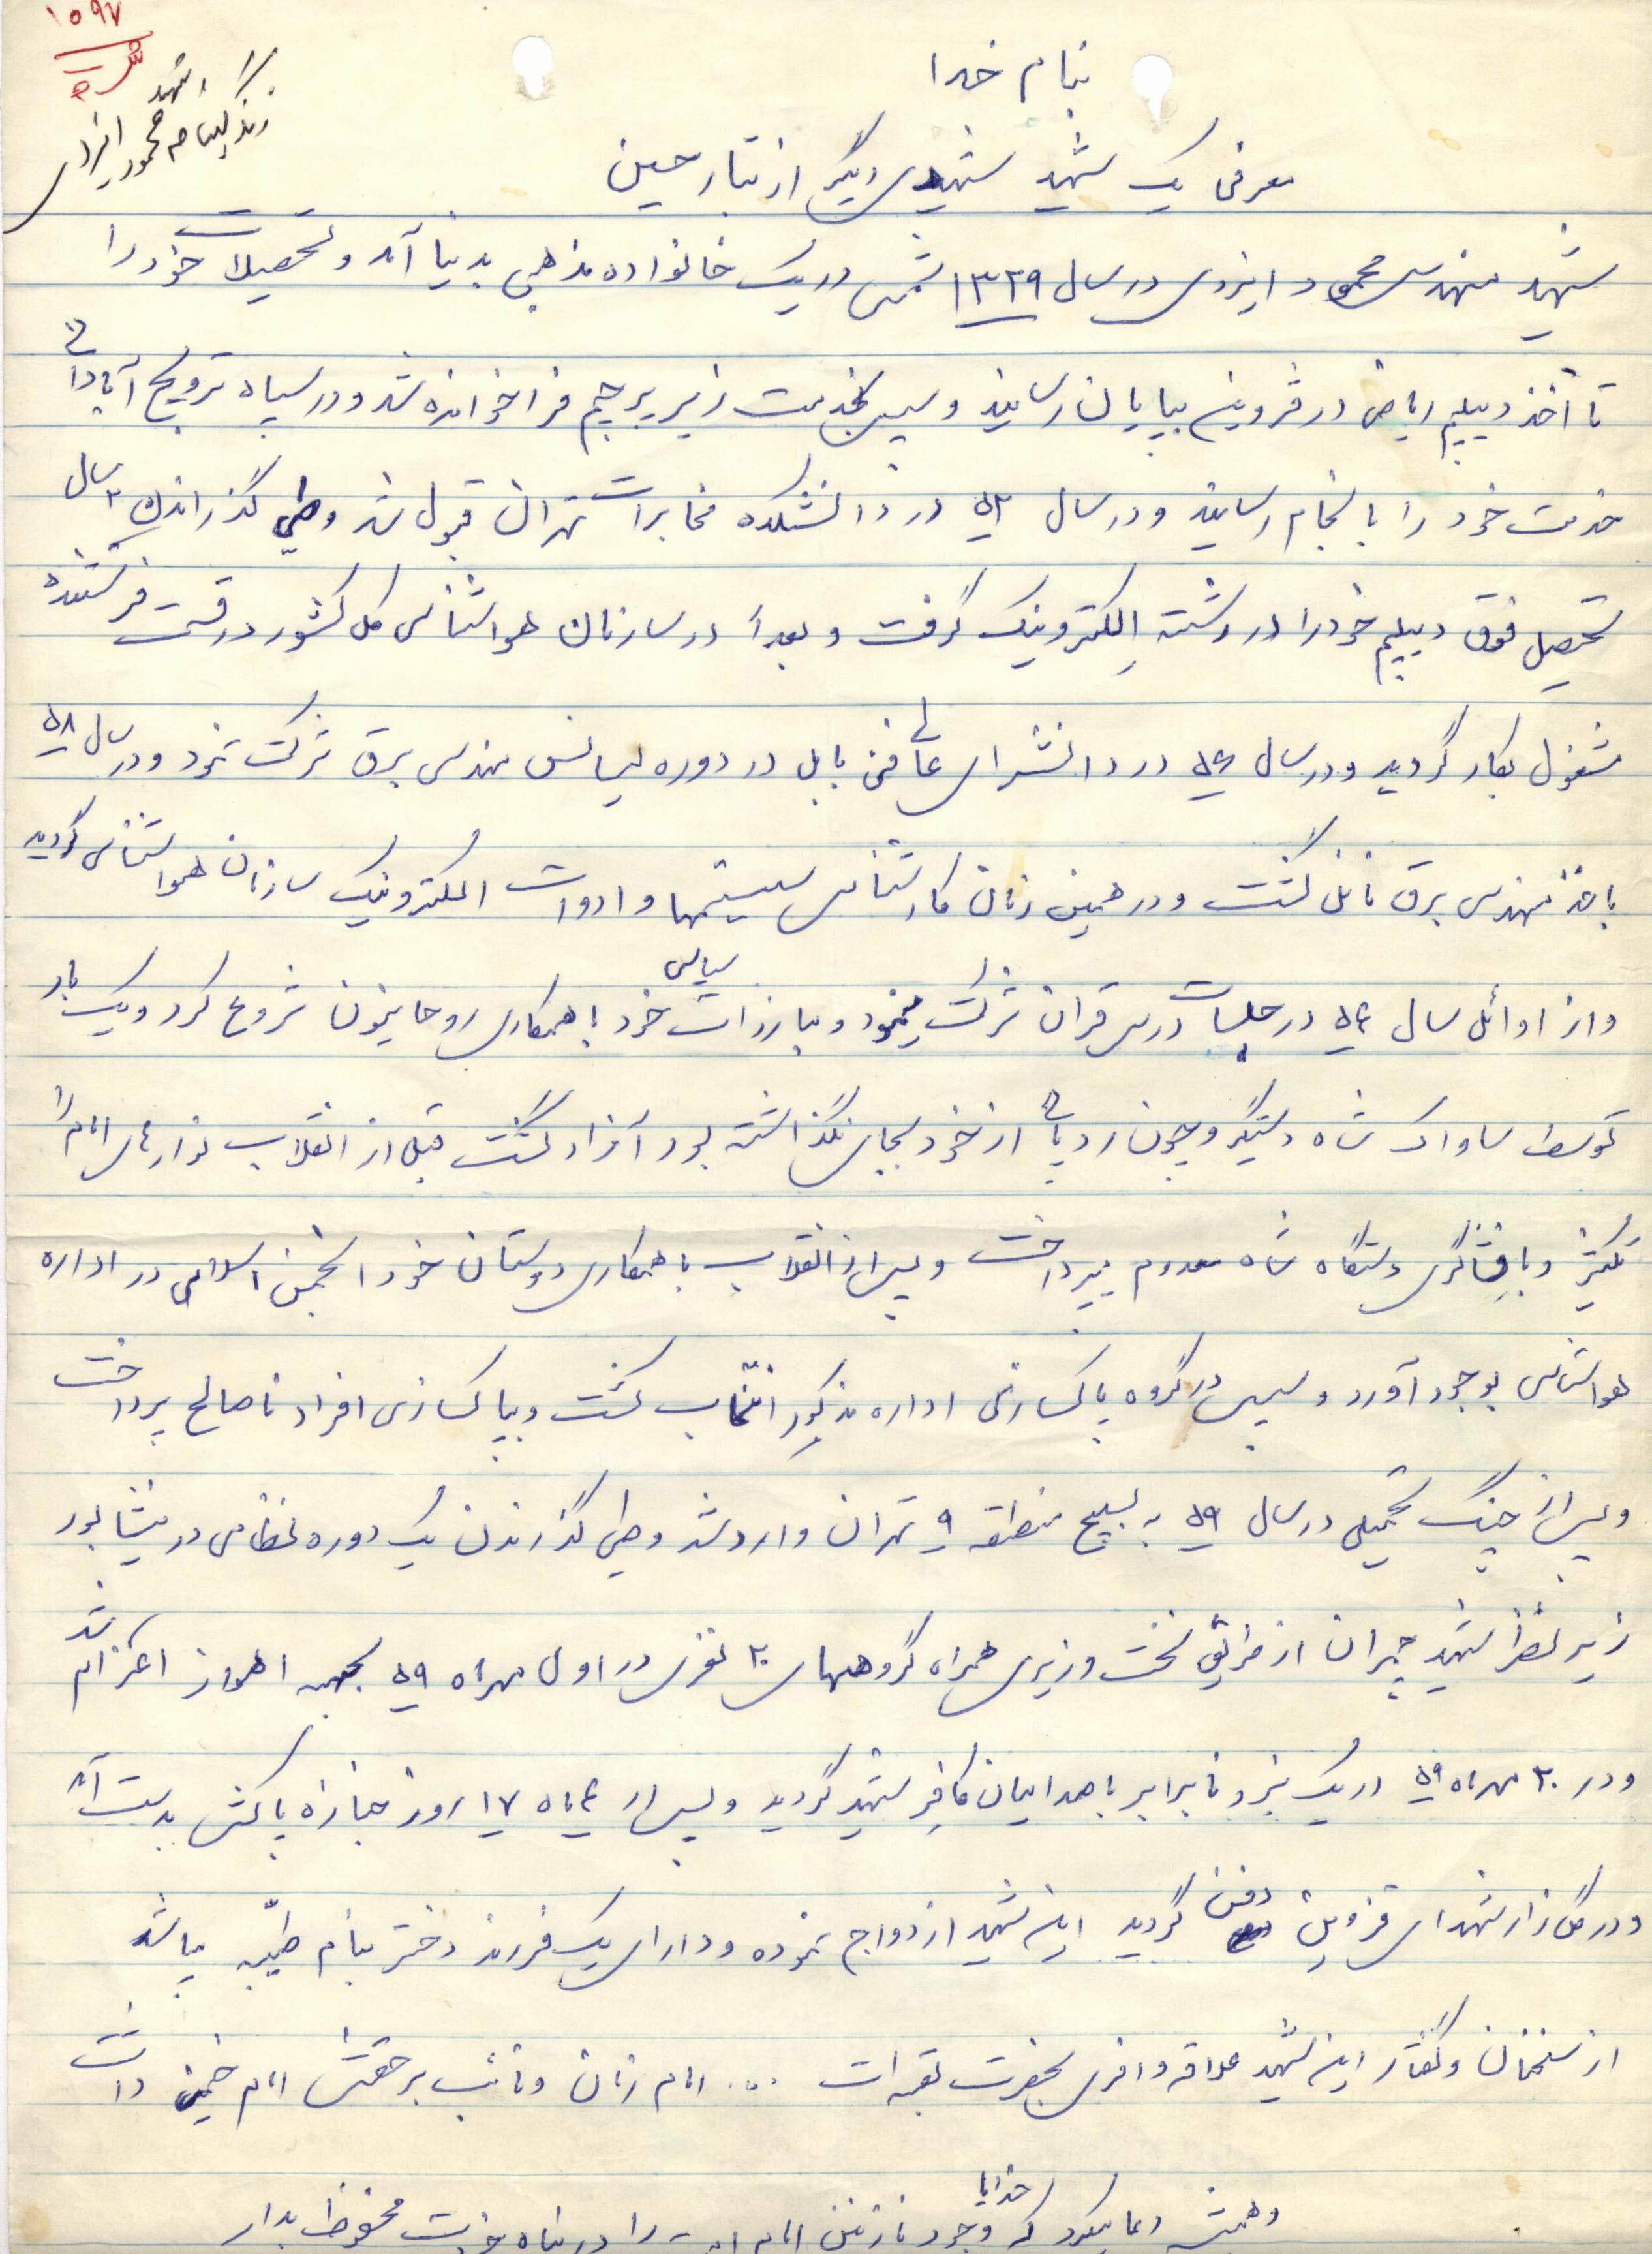 ۱۵۹۷
زندگینامه شهید محمود ایزدی
بنام خدا
معرفی یک شهید شهیدی دیگر از تبار حسین
شهید مهندس محمود ایزدی در سال ۱۳۲۹ شمسی در یک خانواده مذهبی بدنیا آمد و تحصیلات خود را
تا اخذ دیپلم ریاضی در قزوین بپایان رسانید و سپس بخدمت زیر پرچم فراخوانده شد و در سپاه ترویج آبادانی
خدمت خود را بانجام رسانید و در سال ۵۳ در دانشکده مخابرات تهران قبول شد و طی گذراندن ۲ سال
تحصیل فوق دیپلم خود را در رشته الکترونیک گرفت و بعداً در سازمان هواشناسی کل کشور در قسمت فرستنده
مشغول بکار گردید و در سال ۵۶ در دانشسرای عالی فنی بابل در دوره لیسانس مهندسی برق شرکت نمود و در سال ۵۸
باخذ مهندسی برق نائل گشت و در همین زمان کارشناس سیستمها و ادوات الکترونیک سازمان هواشناسی گردید
و از اوائل سال ۵۴ در جلسات درس قرآن شرکت مینمود و مبارزات سیاسی خود با همکاری روحانیون شروع کرد و یک بار
توسط ساواک شاه دستگیر و چون ردپائی از خود بجای نگذاشته بود آزاد گشت قبل از انقلاب نوارهای امام را
تکثیر و بافشاگری دستگاه شاه معدوم میپرداخت و پس از انقلاب با همکاری دوستان خود انجمن اسلامی در اداره
هواشناسی بوجود آورد و سپس در گروه پاکسازی اداره مذکور انتخاب گشت و بپاکسازی افراد ناصالح پرداخت
و پس از جنگ تحمیلی در سال ۵۹ به بسیج منطقه ۹ تهران وارد شد و طی گذراندن یک دوره نظامی در نیشابور
زیر نظر شهید چمران از طریق نخست وزیری همراه گروههای ۳۰ نفری در اول مهرماه ۵۹ بجبهه اهواز اعزام شد
و در ۳۰ مهرماه ۵۹ در یک نبرد نابرابر با صدامیان کافر شهید گردید و پس از ۴ ماه ۱۷ روز جنازه پاکش بدست آمد
و در گلزار شهدای قزوین دفن گردید این شهید ازدواج نموده و دارای یک فرزند دختر بنام طیّبه میباشد
از سخنان و گفتار این شهید علاقه وافری بحضرت بقیه ات .... امام زمان و نائب برحقش امام خمینی داشت
و همیشه دعا میکرد که خدایا وجود نازنین امام امت را در پناه خودت محفوظ بدار